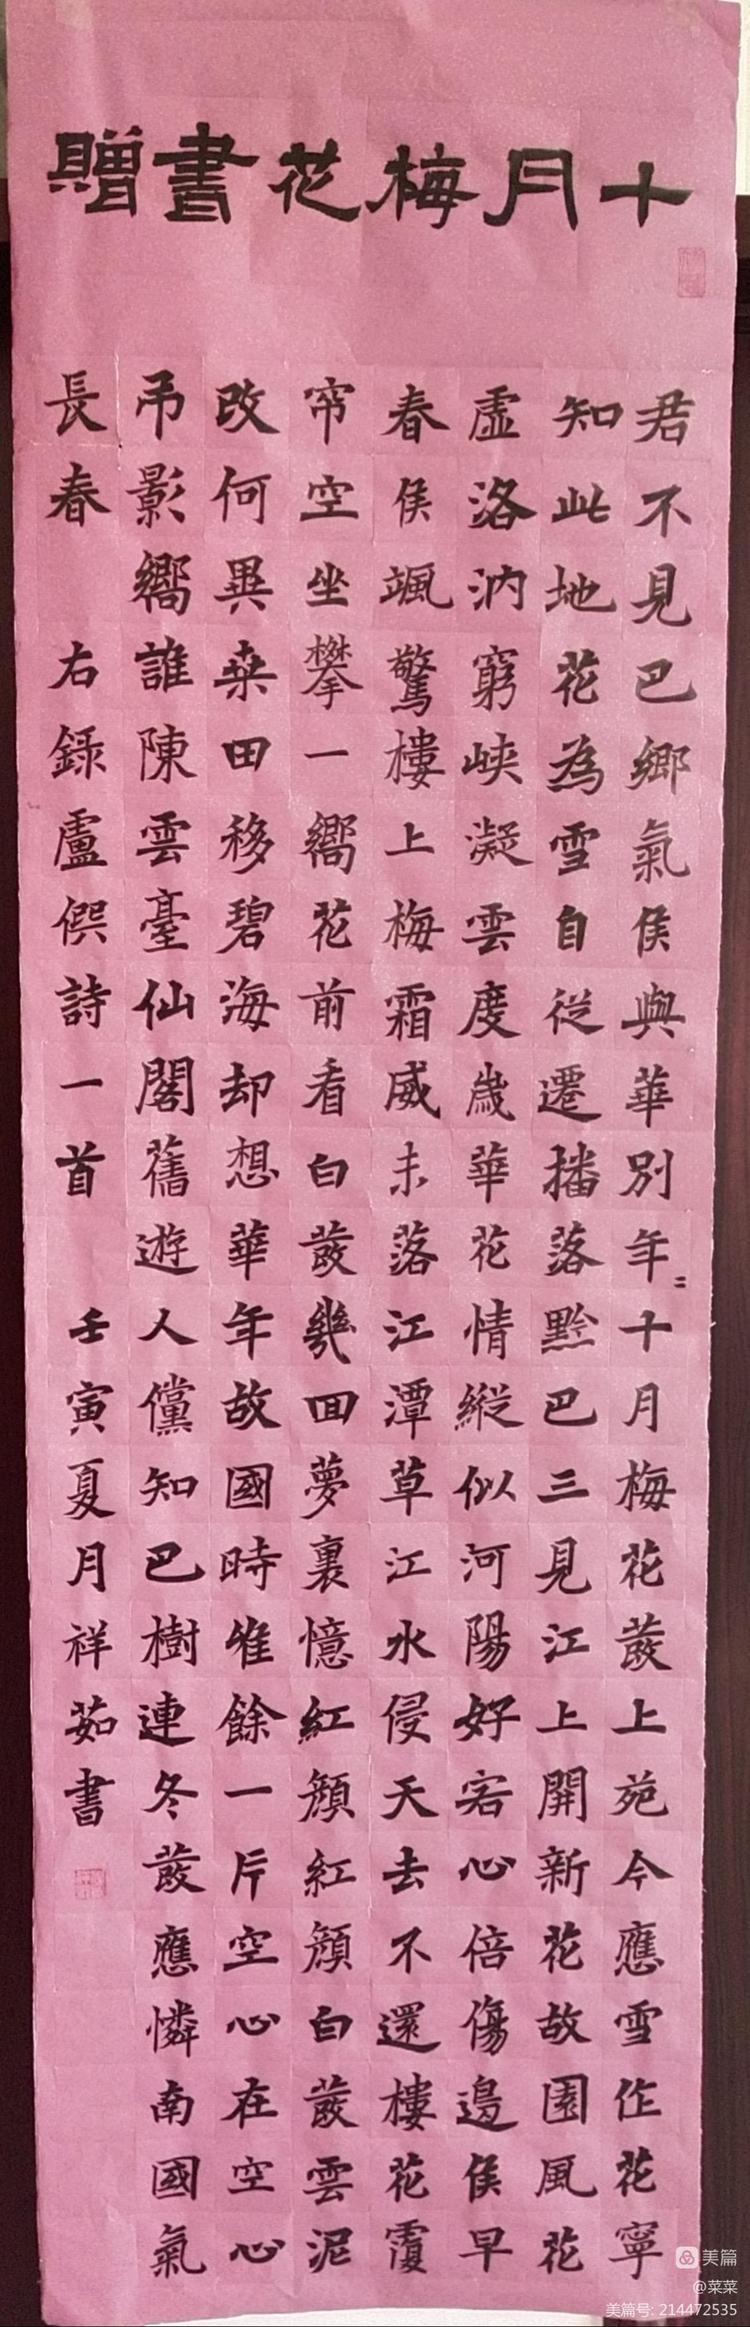 十月梅花書贈
君不見巴鄉氣侯與華別年〻十月梅花蕟上苑今應雪作花寧
知此地花為雪自從遷播落黔巴三見江上開新花故園風花
虛洛汭窮峽凝雲度歲華花情縱似河陽好客心倍傷邊侯早
春侯颯驚樓上梅霜威未落江潭草江水侵天去不還樓花覆
帘空坐攀一嚮花前看白蕟幾回夢裏憶紅顏紅顏白蕟雲泥
改何異桒田移碧海却想華年故國時惟餘一片空心在空心
吊影嚮誰陳雲臺仙閣舊遊人儻知巴樹連冬蕟應憐南國氣
長春 右錄盧僎詩一首 壬寅夏月祥茹書
美篇
@菜菜
美篇号: 214472535